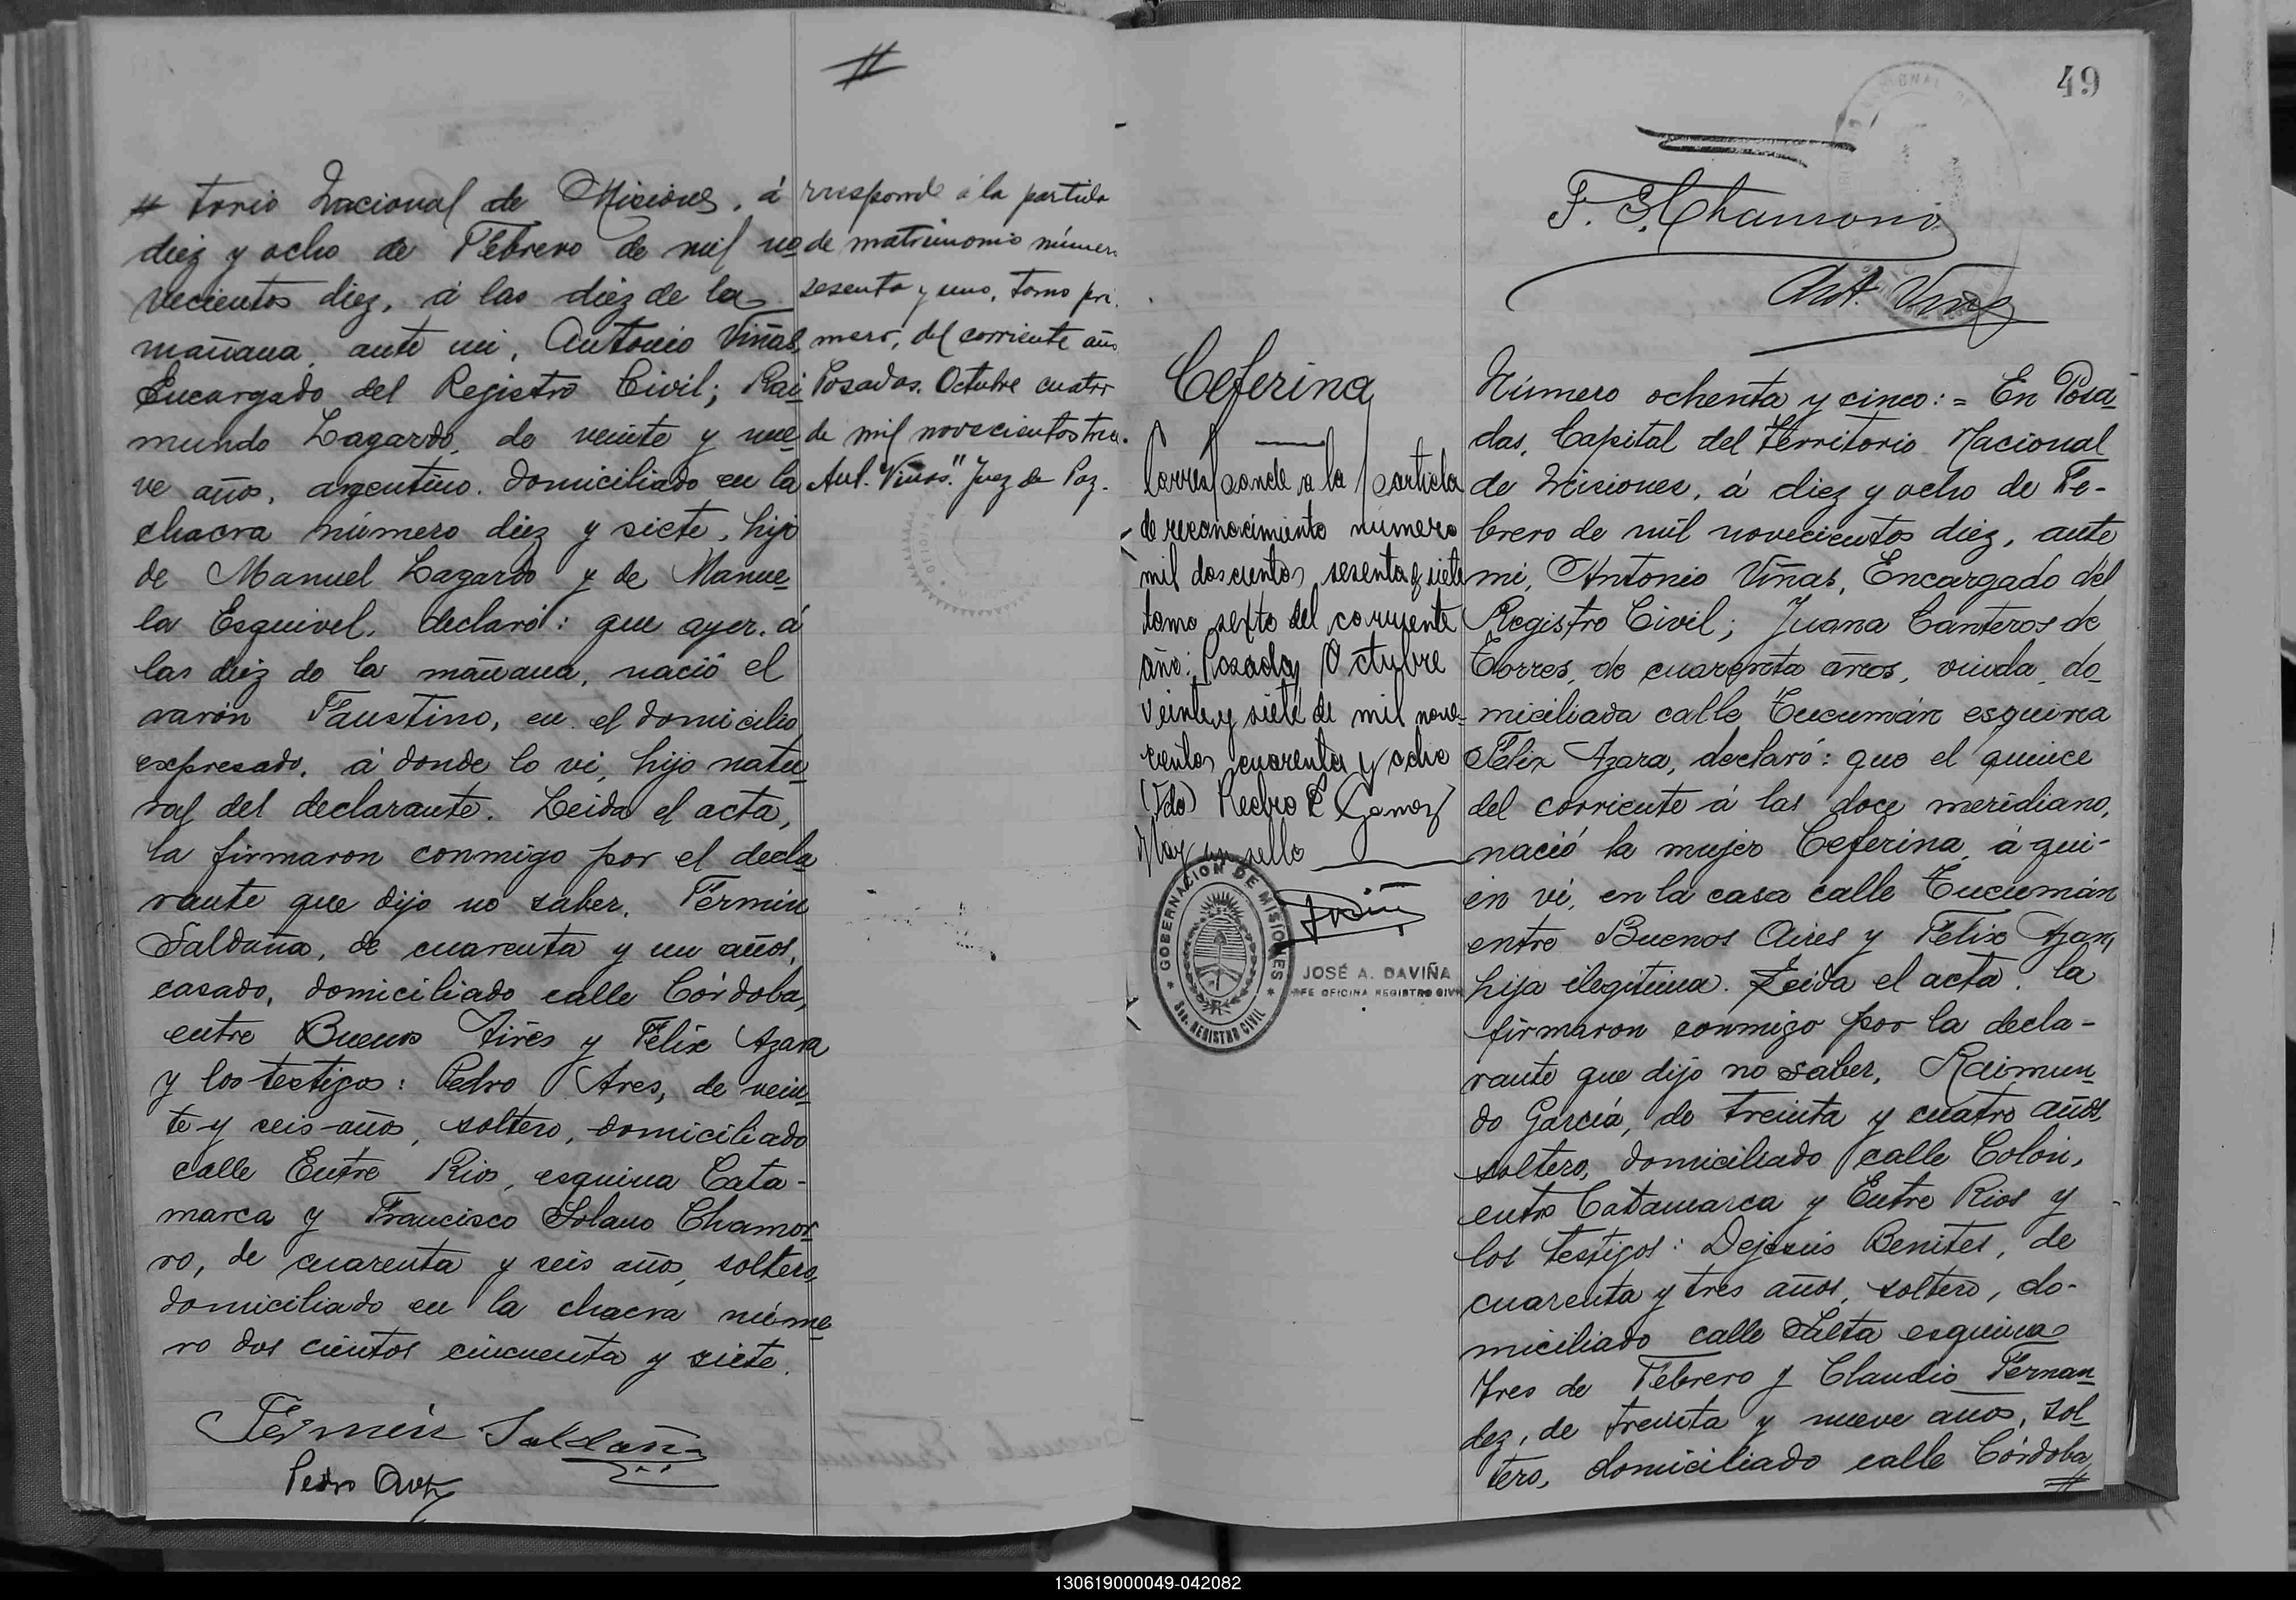 #
# torio Nacional de Misiones, á
diez y ocho de Febrero de mil no
vecientos diez, á las diez de la
mañana, ante mi, Antonio Viñas,
Encargado del Registro Civil; Rai
mundo Lagardo, de veinte y nue
ve años, argentino, domiciliado en la
chacra número diez y siete, hijo
de Manuel Lagardo y de Manue-
la Esquivel, declaró: que ayer, á
las diez de la mañana, nació el
varón Faustino, en el domicilio
expresado, á donde lo vi, hijo natu
ral del declarante. Leida el acta,
la firmaron conmigo por el decla
rante que dijo no saber, Fermin
Saldaña, de cuarenta y un años,
casado, domiciliado calle Córdoba,
entre Buenos Aires y Félix Azara
y los testigos: Pedro Ares, de vein
te y seis años, soltero, domiciliado
calle Entre Rios, esquina Cata-
marca y Francisco Solano Chamor
ro, de cuarenta y seis años, soltero,
domiciliado en la chacra núme
ro dos cientos cincuenta y siete.
Fermín Saldaña
Pedro
rresponde á la partida
de matrimonio númer
sesenta y uno, tomo pri.
mero, del corriente año
Posadas. Octubre cuatro
de mil novecientos trec.
Ant. Viñas." Juez de Paz.
49
F. S. Chamorro
Ant. Viñas
Ceferina
Corresponde a la partida
de reconocimiento número
mil doscientos sesenta y siete
tomo sexto del corriente
año: Posadas Octubre
veinte y siete de mil nove-
cientos cuarenta y ocho
(Fdo) Pedro E Gomez
Hay un sello
GOBERNACION DE MISIONES
REGISTRO CIVIL
JOSÉ A. DAVIÑA
JEFE OFICINA REGISTRO CIVIL
Número ochenta y cinco: = En Posa
das, Capital del Territorio Nacional
de Misiones, á diez y ocho de Fe-
brero de mil novecientos diez, ante
mi, Antonio Viñas, Encargado del
Registro Civil; Juana Canteros de
Torres, de cuarenta años, viuda, do
miciliada calle Tucumán esquina
Félix Azara, declaró: que el quince
del corriente á las doce meridiano,
nació la mujer Ceferina, á qui-
en vi, en la casa calle Tucumán
entre Buenos Aires y Felix Azara,
hija ilegitima. Leida el acta, la
firmaron conmigo por la decla-
rante que dijo no saber, Raimun
do García, de treinta y cuatro años,
soltero, domiciliado calle Colón,
entre Catamarca y Entre Rios y
los testigos: Dejesús Benites, de
cuarenta y tres años, soltero, do-
miciliado calle Salta esquina
Tres de Febrero y Claudio Fernan
dez, de treinta y nueve años, sol
tero, domiciliado calle Córdoba
#
130619000049-042082